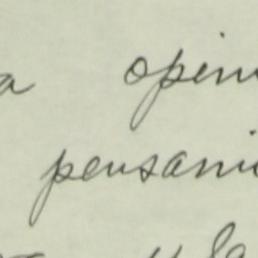 a opin
pensami